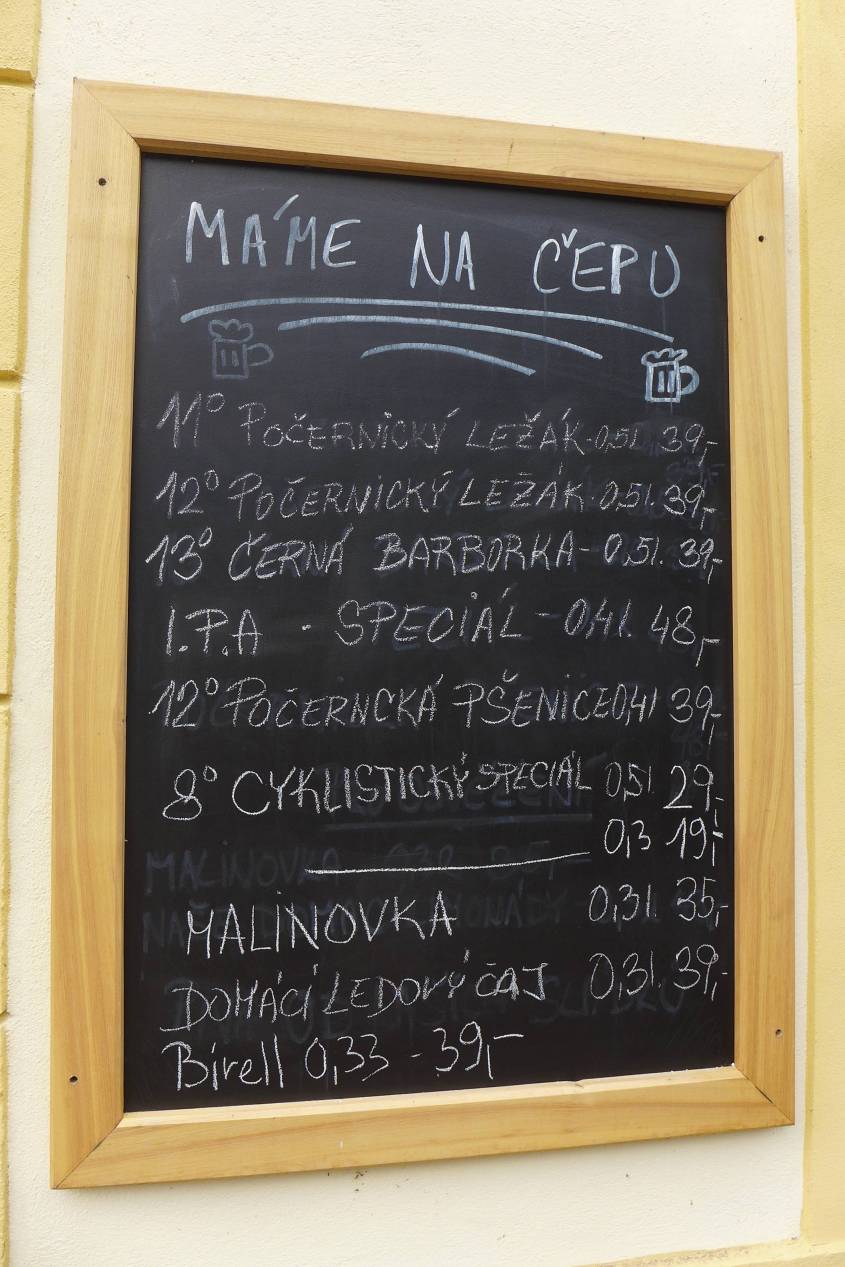 MÁME NA ČEPU
11° POČERNICKÝ LEŽÁK-0,5l. 39,-
12° POČERNICKÝ LEŽÁK-0,5l. 39,-
13° ČERNÁ BARBORKA- 0,5l. 39,-
I.P.A - SPECIÁL - 0,4l. 48,-
12° POČERNCKÁ PŠENICE 0,4l 39,-
8° CYKLISTICKÝ SPECIÁL 0,5l. 29,-
0,3 19,-
MALINOVKA 0,3l. 35,-
DOMÁCÍ LEDOVÝ ČAJ 0,3l. 39,-
Birell 0,33 - 39,-